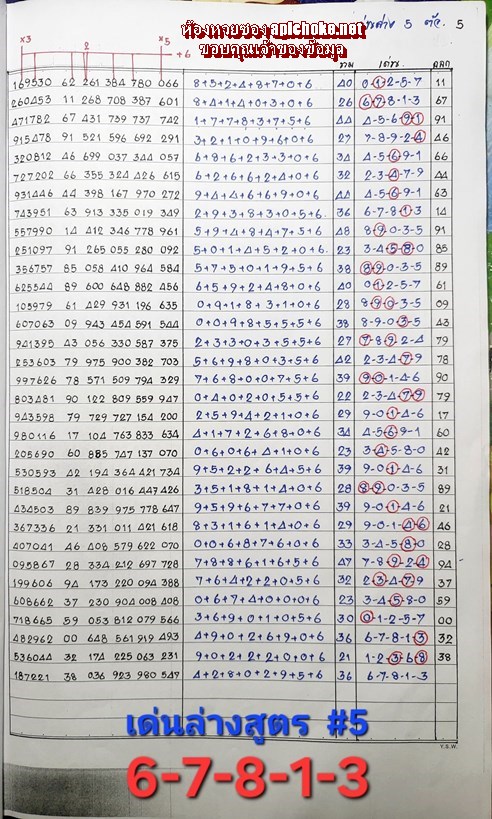 ห้องหวยของ apichoke.net
ขอบคุณเจ้าของข้อมูล
5 ตัว. 5
x3 2 x5 +6
รวม เด่น ออก
169530 62 261 384 780 066 8+5+2+4+8+7+0+6 40 0-1-2-5-7 11
260453 11 268 708 387 601 8+4+1+4+0+3+0+6 26 6-7-8-1-3 67
471782 67 431 739 737 742 1+7+7+8+3+7+5+6 44 4-5-6-9-1 91
915478 91 521 596 692 291 3+2+1+0+9+6+0+6 27 7-8-9-2-4 46
320812 46 699 037 344 057 6+8+6+2+3+3+0+6 34 4-5-6-9-1 66
727202 66 355 324 426 615 6+2+6+6+2+4+0+6 32 2-3-4-7-9 44
931446 44 398 167 970 272 9+4+4+6+6+9+0+6 44 4-5-6-9-1 63
743951 63 913 335 019 349 2+9+3+8+3+0+5+6 36 6-7-8-1-3 14
557990 14 412 346 778 961 5+9+4+8+4+7+5+6 48 8-9-0-3-5 91
251097 91 265 055 280 092 5+0+1+4+5+2+0+6 23 3-4-5-8-0 85
356757 85 058 410 964 584 5+7+5+0+1+9+5+6 38 8-9-0-3-5 89
625544 89 600 648 882 456 6+5+9+2+4+8+0+6 40 0-1-2-5-7 61
103979 61 429 931 196 635 0+9+1+8+3+1+0+6 28 8-9-0-3-5 09
607063 09 943 454 591 544 0+0+9+8+5+5+5+6 38 8-9-0-3-5 43
941395 43 056 330 587 375 2+3+3+0+3+5+5+6 27 7-8-9-2-4 79
253603 79 975 900 382 703 5+6+9+8+0+3+5+6 42 2-3-4-7-9 78
997626 78 571 509 794 329 7+6+8+0+0+7+5+6 39 9-0-1-4-6 90
803481 90 122 809 559 947 0+4+0+2+0+5+5+6 22 2-3-4-7-9 79
943598 79 729 727 154 200 2+5+9+4+2+1+0+6 29 9-0-1-4-6 17
980116 17 104 763 833 634 4+1+7+2+6+8+0+6 34 4-5-6-9-1 60
205690 60 885 747 137 070 0+6+0+6+4+1+0+6 23 3-4-5-8-0 42
530593 42 194 364 421 734 9+5+2+2+6+4+5+6 39 9-0-1-4-6 31
518504 31 428 016 447 426 3+5+1+8+1+4+0+6 28 8-9-0-3-5 89
434503 89 839 975 778 647 9+5+9+6+7+7+0+6 39 9-0-1-4-6 21
367336 21 331 011 421 618 8+3+1+6+1+4+0+6 29 9-0-1-4-6 46
407041 46 408 579 622 070 0+0+6+8+7+6+0+6 33 3-4-5-8-0 28
095867 28 334 212 697 728 7+8+8+6+1+6+5+6 47 7-8-9-2-4 94
199606 94 173 220 094 388 7+6+4+2+2+0+5+6 32 2-3-4-7-9 37
608662 37 230 904 008 408 0+6+7+4+0+0+0+6 23 3-4-5-8-0 59
718665 59 053 812 079 566 3+6+9+0+1+0+5+6 30 0-1-2-5-7 00
482962 00 648 561 919 493 4+9+0+2+6+9+0+6 36 6-7-8-1-3 32
536044 32 174 225 063 231 9+0+2+2+2+0+0+6 21 1-2-3-6-8 38
187221 38 036 923 980 547 4+2+8+0+2+9+5+6 36 6-7-8-1-3
เด่นล่างสูตร #5
Y.S.W.
6-7-8-1-3